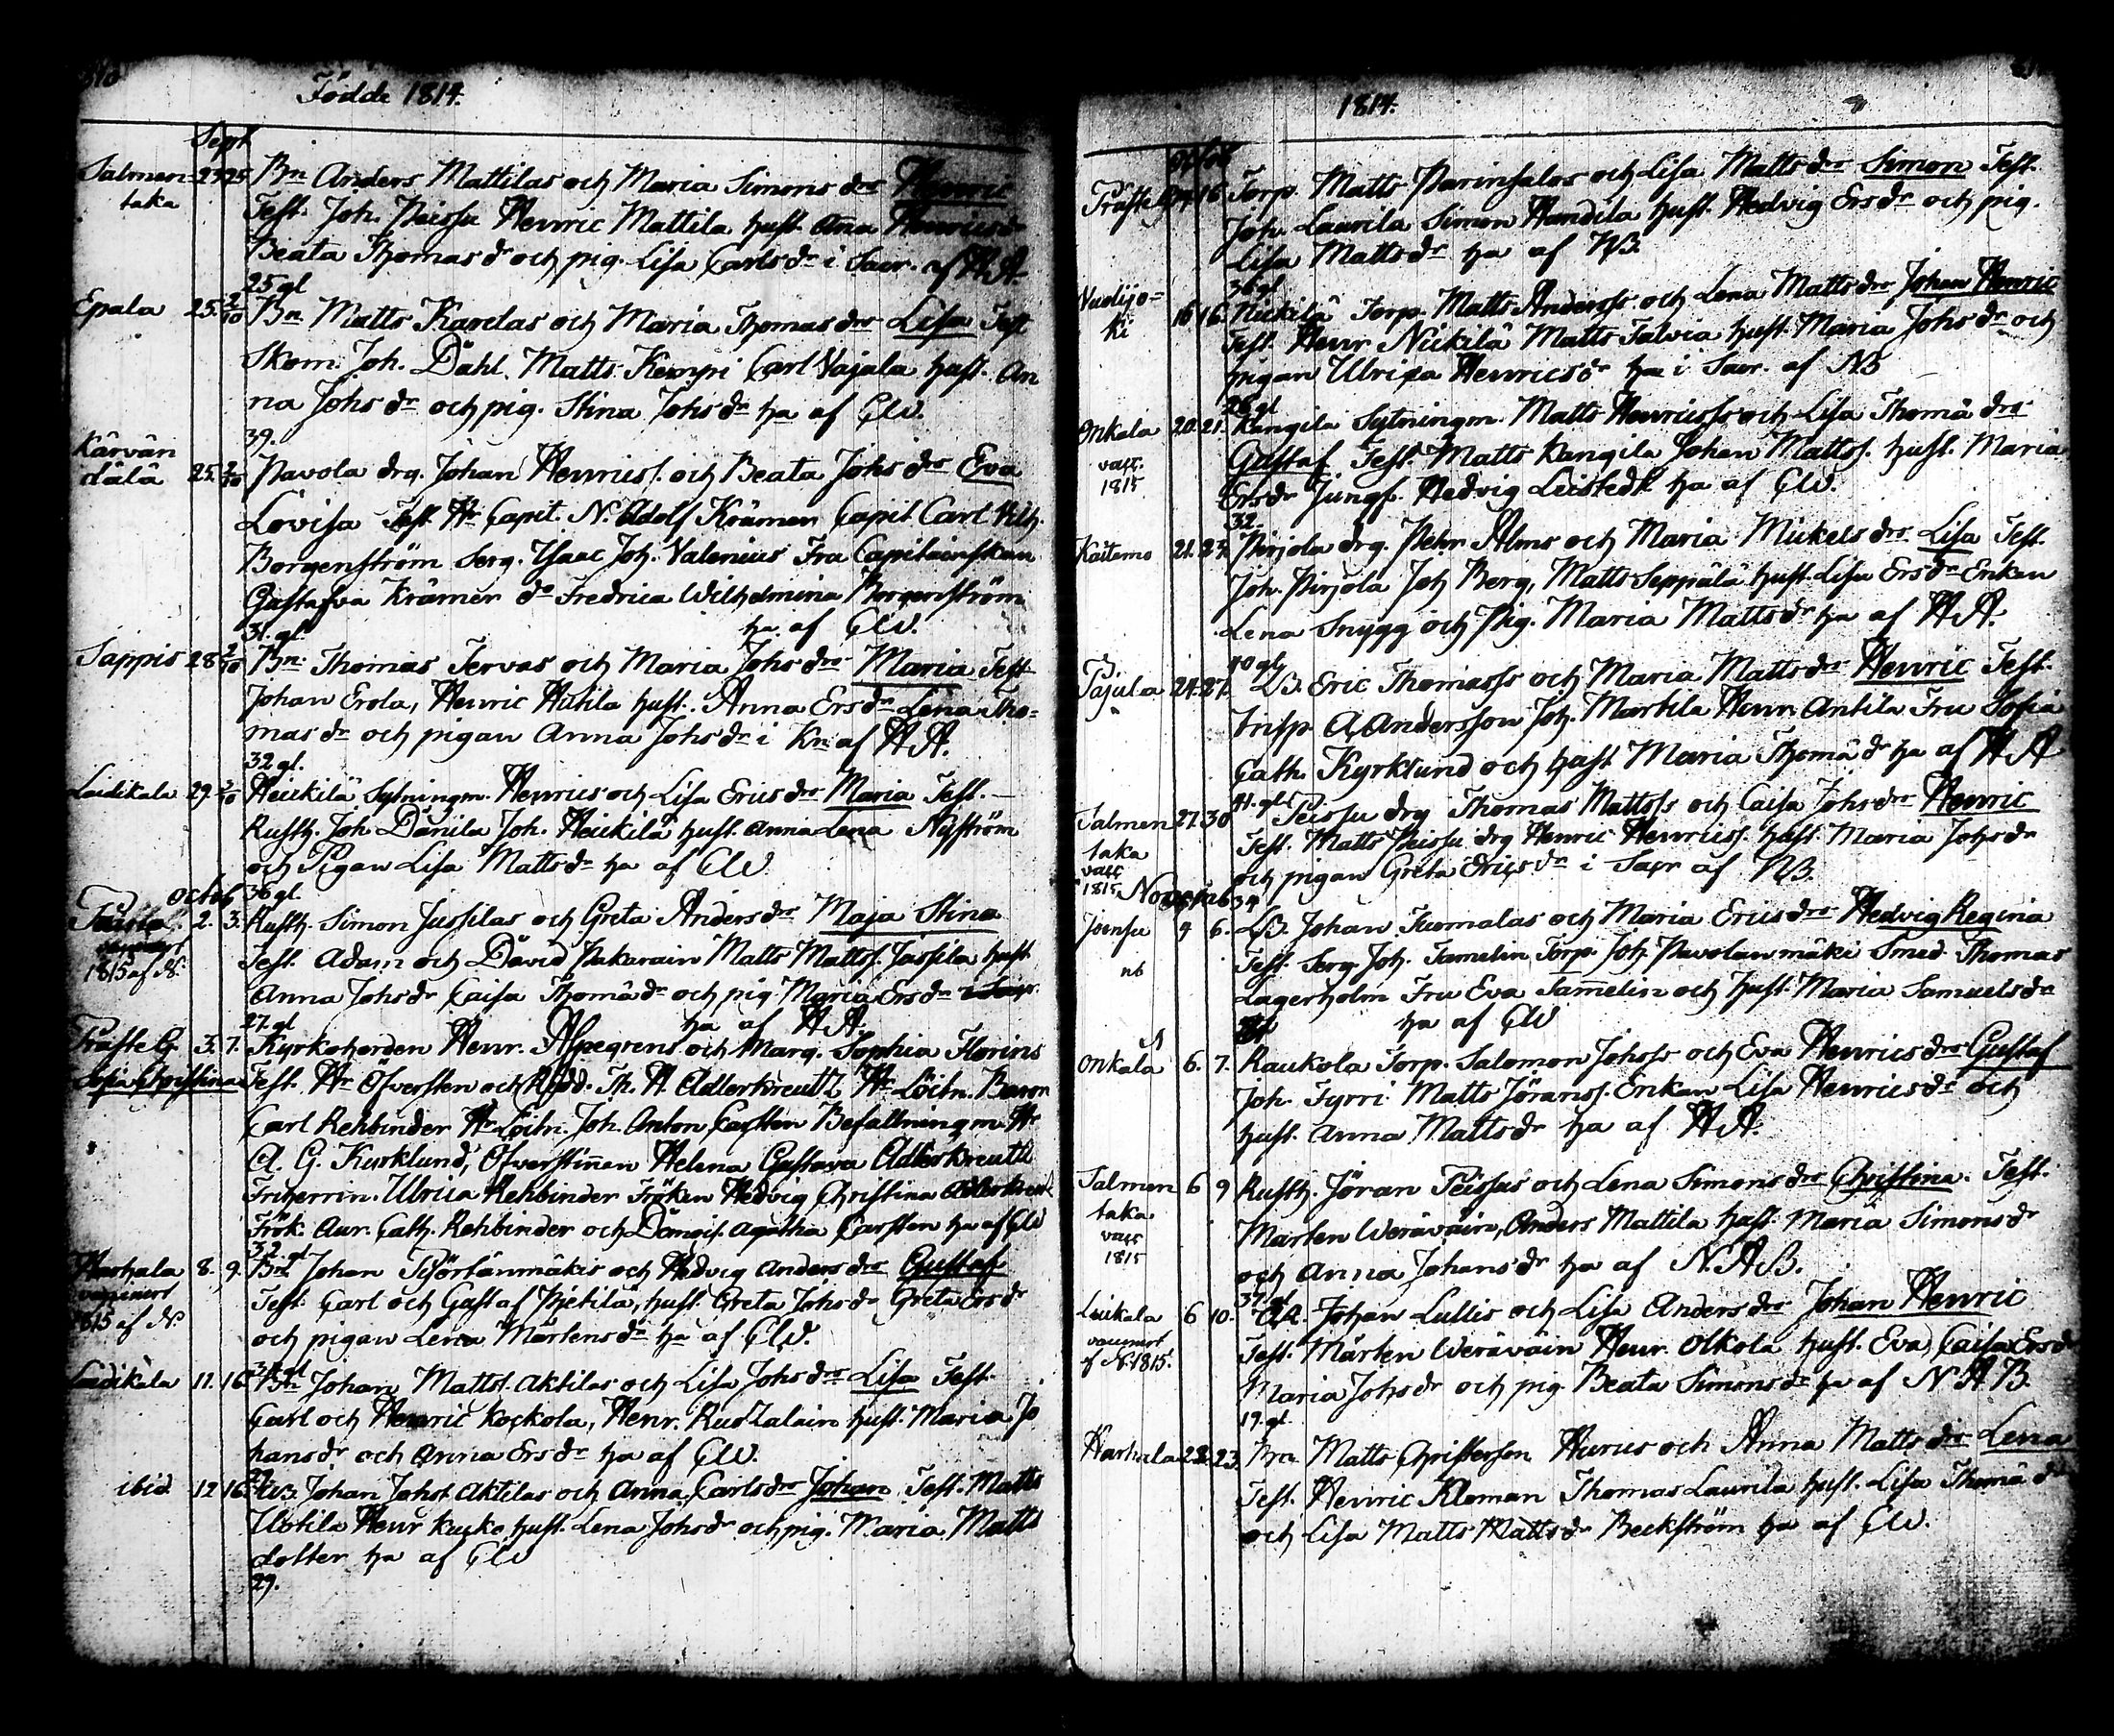 Födde 1814.
Sept
Salmen- 23 25 Bn Anders Mattilas och Maria Simons drs Henric
taka Test. Joh. Peissu Henric Mattila hust. Ana Henricsdr
Beata Thomas dr och pig. Lisa Carls dr i Sacr. af HA.
25 gl
Epala 25. 2/10 Bn Matts Kavelas och Maria Thomas drs Lisa Test
Skom. Joh. Dahl. Matts Kempi Carl Vajala hust. An
na Johs dr och pig. Stina Johs dr ha af CW.
39.
Kärvän
dälä 25. 2/10 Pavola drg. Johan Henricss. och Beata Johs drs Eva
Lovisa Test. Hr Capit. N. Adolf Krämer Capit Carl Wilh.
Borgenström Serg. Isaac Joh. Valenius Fra Capitainskan
Gustafva Krämer do Fredrica Wilhelmina Borgenström
31. gl ha af CW.
Sappis 28 2/10 Bn Thomas Tervas och Maria Johs drs Maria Test
Johan Erola, Henric Hutila hust. Anna Ers dr Lena Tho=
mas dr och pigan Anna Johs dr i Kn af HA.
32 gl.
Laidikala 29. 2/10 Heickilä Sytningm. Henrics och Lisa Erics drs Maria Test.
Rusth. Joh. Dänila Joh. Heickilä hust. Anna Lena Nyström
och Pigan Lisa Matts dr ha af CW
octob 36 gl.
2. 3. Rusth. Simon Jussilas och Greta Anders drs Maja Stina
1815 af N. Test. Adam och David Pakarain Matts Mattss. Jussila hust
Anna Johs dr Caisa Thomä dr och pig Maria Ers dr
27. gl ha af HA.
Präste G. 3. 7. Kyrkoherden Henr. Alpegrens och Marg. Sophia Florins
Sofia Christina Test. Hr Öfversten och Rydd. Th. A Adlerkreutz Hr Löitn. Baron
Carl Rehbinder Hr Löitn. Joh. Anton Carsten Befallningm. Hr
A. G. Kyrklund, Öfverstinnan Helena Gustava Adlerkreutz
Friherrin. Ulrica Rehbinder Fröken Hedvig Christina Adlerkreutz
Frök. Aur. Cath. Rehbinder och Dämois. Agatha Carsten ha af CW
32. gl
Harhala 8. 9. Bn Johan Pyörlänmäkis och Hedvig Anders drs Gustaf
Test. Carl och Gustaf Pietilä, hust. Greta Johs dr Greta Ers dr
1815 af N. och pigan Lena Mårtens dr ha af CW.
34 gl
Laidikala 11. 16 Bn Johan Mattss. Aktilas och Lisa Johs drs Lisa Test.
Carl och Henric Kockola, Henr. hust. Maria Jo
hans dr och Anna Ers dr ha af CW.
ibid 12 16. Johan Johss. Aktilas och Anna Carls drs Johan Test. Matts
Uotila Henr Kucko hust. Lena Johs dr och pig. Maria Matts
dotter ha af CW
29.
1814.
octob
Präste G. 16 Torp. Matts Parinsalos och Lisa Matts drs Simon Test.
Joh. Laurila Simon Handila hust. Hedvig Ers dr och pig.
Lisa Matts dr ha af NB.
36 gl
Vuolijo=
ki 16 16. Nickilä Torp. Matts Anderss. och Lena Matts drs Johan Henric
Test. Henr Nickilä Matts Talvia hust. Maria Johs dr och
pigan Ulrica Henrics dr ha i Sacr. af NB
28 gl
Onkala 20. 21. Kangila Sytningm. Matts Henricss och Lisa Thomä drs
vacc. Gustaf Test. Matts Kangila Johan Mattss. hust. Maria
1815 Ers dr Jungf. Hedvig Leistedt ha af CW.
32.
Kaitemo 21. 23. Pirjola drg. Pehr Alms och Maria Mickels drs Lisa Test.
Joh. Pirjola Joh Berg, Matts Seppälä hust. Lisa Ers dr Enkan
Lena Snygg och Pig. Maria Matts dr ha af HA.
40 gl
Pajula 24. 27. LB. Eric Thomass och Maria Matts drs Henric Test.
Insp. A. Andersson Joh. Martila Henr. Antila Fru Sofia
Cath. Kyrklund och hust Maria Thomä dr ha af HA
41. gl
Talmen 27. 30 Peissu drg Thomas Mattss och Caisa Johs drs Henric
taka Test. Matts Peissu drg Henric Henricss. hust. Maria Johs dr
vacc
1815. och pigan Greta Erics dr i Sacr af NB.
Novemb 34
Joensu 4 6. LB. Johan Kumalas och Maria Erics drs Hedvig Regina
nb Test. Serg. Joh. Tamelin Torp. Joh. Pavolanmäki Smed Thomas
Lagerholm Fru Eva Tam̅elin och Hust. Maria Samuels dr
ha af CW
Onkala 6. 7. Raukola Torp. Salomon Johss och Eva Henrics drs Gustaf
Joh. Tyrri Matts Jöranss. Enkan Lisa Henrics dr och
hust. Anna Matts dr ha af HA.
Talmen 6 9 Rusth. Jöran Peissus och Lena Simons drs Christina. Test.
taka Mårten Werävain, Anders Mattila hust. Maria Simons dr
vacc
1815 och Anna Johans dr ha af N.A.B.
37 gl
Leikala 6 10. Johan Lullis och Lisa Anders drs Johan Henric
af N. 1815. Test. Mårten Werävain Henr. Olkola hust. Eva, Caisa Ers dr
Maria Johs dr och pig. Beata Simons dr ha af NAB.
19. gl.
Harhala 22. 23. Matts Christersson Hurus och Anna Matts drs Lena
Test. Henric Kloman Thomas Laurila hust. Lisa Thomä dr
och Lisa Matts Matts dr Beckström ha af CW.